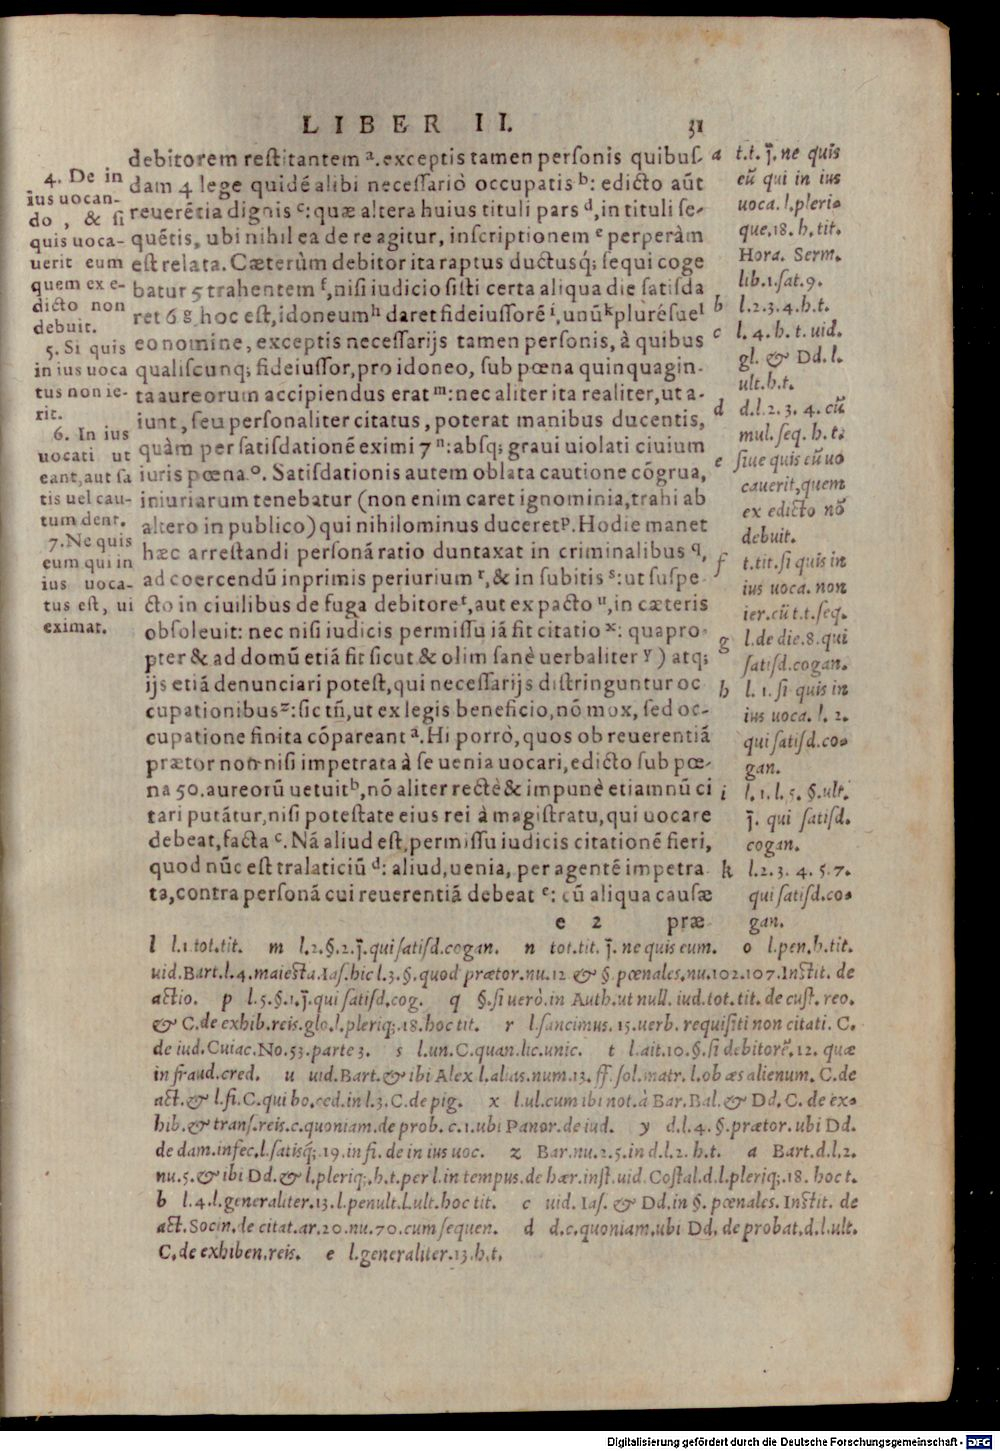 LIBER II. 31
debitorem restitantem ª. exceptis tamen personis quibus-
dam 4 lege quidẽ alibi necessariò occupatis ᵇ: edicto aũt
reuerẽtia dignis ᶜ: quæ altera huius tituli pars ᵈ, in tituli se-
quẽtis, ubi nihil ea de re agitur, inscriptionem ᵉ perperàm
est relata. Cæterùm debitor ita raptus ductusq́; sequi coge
batur 5 trahentem ᶠ, nisi iudicio sisti certa aliqua die satisda
ret 6 g, hoc est, idoneum ʰ daret fideiussorẽ ⁱ, unũ ᵏ plurésue ˡ
eo nomine, exceptis necessarijs tamen personis, à quibus
qualiscunq; fideiussor, pro idoneo, sub pœna quinquagin-
ta aureorum accipiendus erat ᵐ: nec aliter ita realiter, ut a-
iunt, seu personaliter citatus, poterat manibus ducentis,
quàm per satisdationẽ eximi 7 ⁿ: absq; graui uiolati ciuium
iuris pœna ᵒ. Satisdationis autem oblata cautione cõgrua,
iniuriarum tenebatur (non enim caret ignominia, trahi ab
altero in publico) qui nihilominus duceret ᵖ. Hodie manet
hæc arrestandi personã ratio duntaxat in criminalibus q,
ad coercendũ inprimis periurium ʳ, & in subitis ˢ: ut suspe-
cto in ciuilibus de fuga debitore ᵗ, aut ex pacto ᵘ, in cæteris
obsoleuit: nec nisi iudicis permissu iã fit citatio ˣ: quapro-
pter & ad domũ etiã fit sicut & olim sanè uerbaliter ʸ) atq;
ijs etiã denunciari potest, qui necessarijs distringuntur oc
cupationibus ᶻ: sic tñ, ut ex legis beneficio, nõ mox, sed oc-
cupatione finita cõpareant ª. Hi porrò, quos ob reuerentiã
prætor non nisi impetrata à se uenia uocari, edicto sub pœ-
na 50. aureorũ uetuit ᵇ, nõ aliter rectè & impunè etiamnũ ci
tari putãtur, nisi potestate eius rei à magistratu, qui uocare
debeat, facta ᶜ. Nã aliud est, permissu iudicis citationẽ fieri,
quod nũc est tralaticiũ ᵈ: aliud, uenia, per agentẽ impetra-
ta, contra personã cui reuerentiã debeat ᵉ: cũ aliqua causæ
e 2 præ-
4. De in
ius uocan-
do, & si
quis uoca-
uerit eum
quem ex e-
dicto non
debuit.
5. Si quis
in ius uoca
tus non ie-
rit.
6. In ius
uocati ut
eant, aut sa
tis uel cau-
tum dent.
7. Ne quis
eum qui in
ius uoca-
tus est, ui
eximat.
a t.t. j̃. ne quis
eũ qui in ius
uoca. l. pleri-
que. 18. h. tit.
Hora. Serm.
lib. 1. sat. 9.
b l. 2. 3. 4. h. t.
c l. 4. h. t. uid.
gl. & Dd. l.
ult. h. t.
d d. l. 2. 3. 4. cũ
mul. seq. h. t.
e siue quis eũ uo
cauerit, quem
ex edicto nõ
debuit.
f t. tit. si quis in
ius uoca. non
ier. cũ t. t. seq.
g l. de die. 8. qui
satisd. cogan.
h l. 1. si quis in
ius uoca. l. 2.
qui satisd. co-
gan.
i l. 1. l. 5. §. ult.
j̃. qui satisd.
cogan.
k l. 2. 3. 4. 5. 7.
qui satisd. co-
gan.
l l. 1. tot. tit. m l. 2. §. 2. j̃. qui satisd. cogan. n tot. tit. j̃. ne quis eum. o l. pen. h. tit.
uid. Bart. l. 4. maiesta. Ias. hic l. 3. §. quod prætor. nu. 12 & §. pœnales. nu. 102. 107. Instit. de
actio. p l. 5. §. 1. j̃. qui satisd. cog. q §. si uerò. in Auth. ut null. iud. tot. tit. de cust. reo.
& C. de exhib. reis. glo. l. pleriq;. 18. hoc tit. r l. sancimus. 15. uerb. requisiti non citati. C.
de iud. Cuiac. No. 53. parte 3. s l. un. C. quan. lic. unic. t l. ait. 10. §. si debitorẽ. 12. quæ
in fraud. cred. u uid. Bart. & ibi Alex l. alias. num. 13. ff. sol. matr. l. ob æs alienum. C. de
act. & l. fi. C. qui bo. ced. in l. 3. C. de pig. x l. ul. cum ibi not. à Bar. Bal. & Dd. C. de ex-
hib. & trans. reis. c. quoniam. de prob. c. 1. ubi Panor. de iud. y d. l. 4. §. prætor. ubi Dd.
de dam. infec. l. satisq́;. 19. in fi. de in ius uoc. z Bar. nu. 2. 5. in d. l. 2. h. t. a Bart. d. l. 2.
nu. 5. & ibi Dd. & l. pleriq;. h. t. per l. in tempus. de hær. inst. uid. Costal. d. l. pleriq;. 18. hoc t.
b l. 4. l. generaliter. 13. l. penult. l. ult. hoc tit. c uid. Ias. & Dd. in §. pœnales. Instit. de
act. Socin. de citat. ar. 20. nu. 70. cum sequen. d d. c. quoniam. ubi Dd. de probat. d. l. ult.
C. de exhiben. reis. e l. generaliter. 13. h. t.
Digitalisierung gefördert durch die Deutsche Forschungsgemeinschaft - DFG